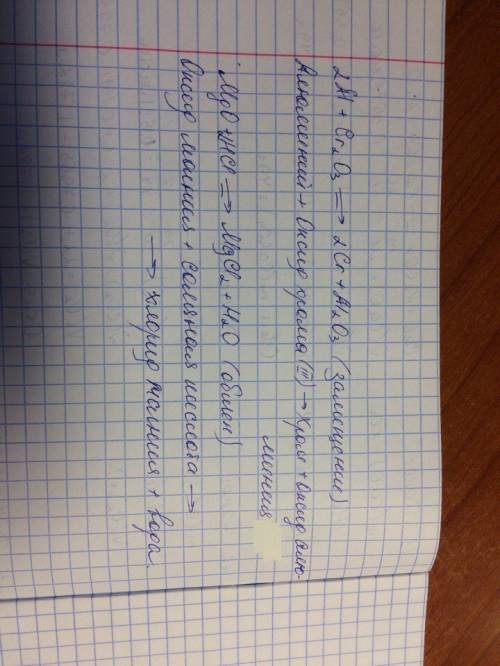 2Al + Cr₂O₃ ⟹ 2Cr + Al₂O₃ (замещение)
Алюминий + Оксид хрома (III) → Хром + Оксид алю-
миния
MgO + 2HCl ⟹ MgCl₂ + H₂O (обмен)
Оксид магния + Соляная кислота →
→ хлорид магния + вода.